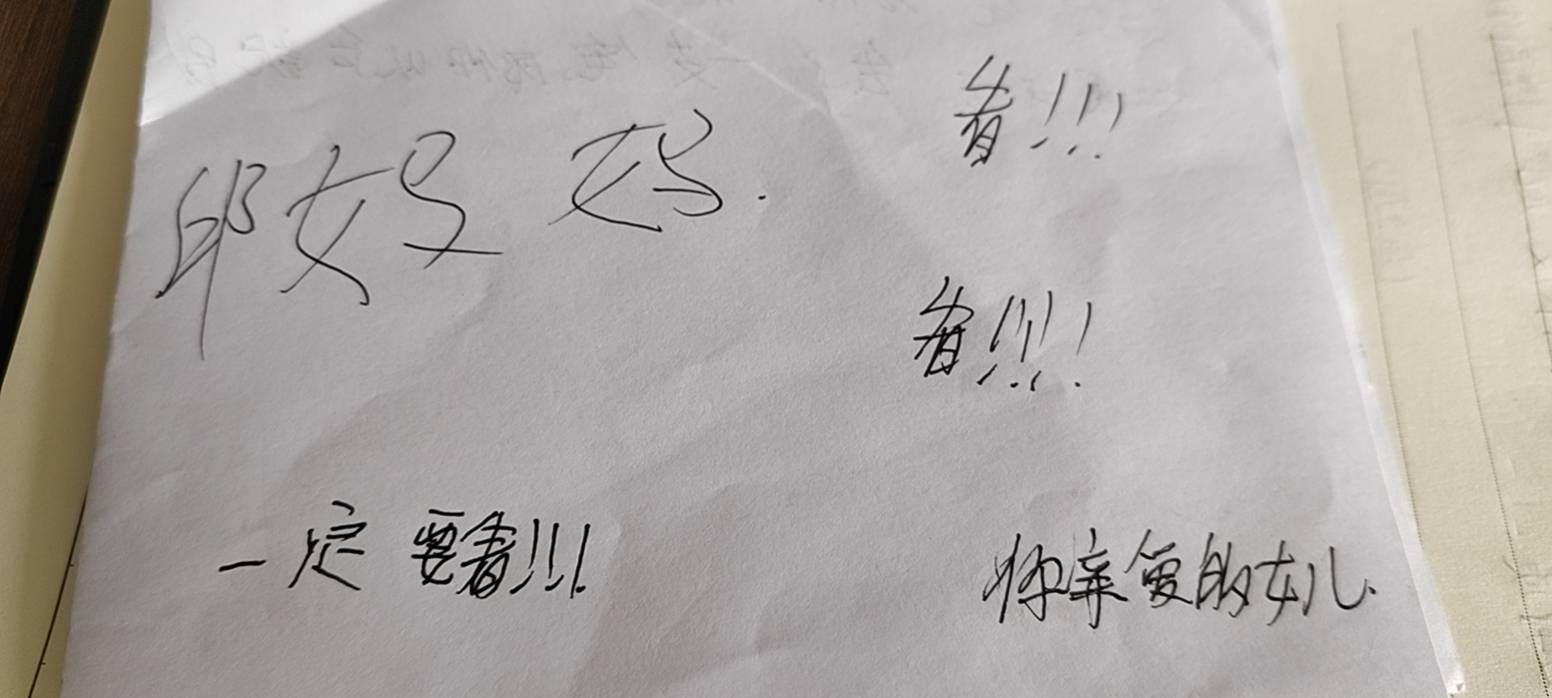 邱妈妈.
看!!!
看!!!!
一定要看!!!
你亲爱的女儿.